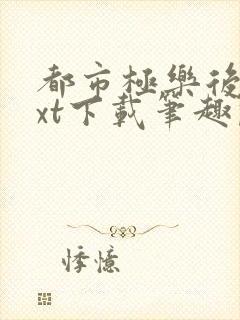 都市極樂後
xt下載筆趣
悸憶